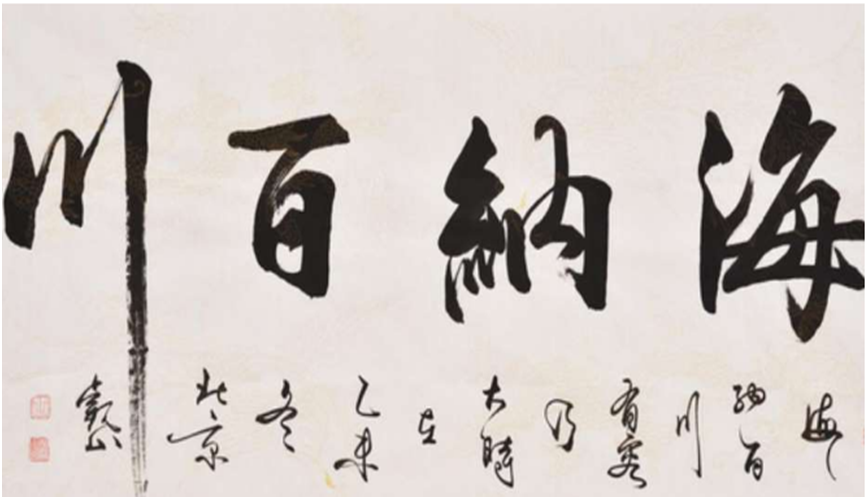 海納百川
海
納百
川
有容
乃
大時
在
乙未
冬
北京